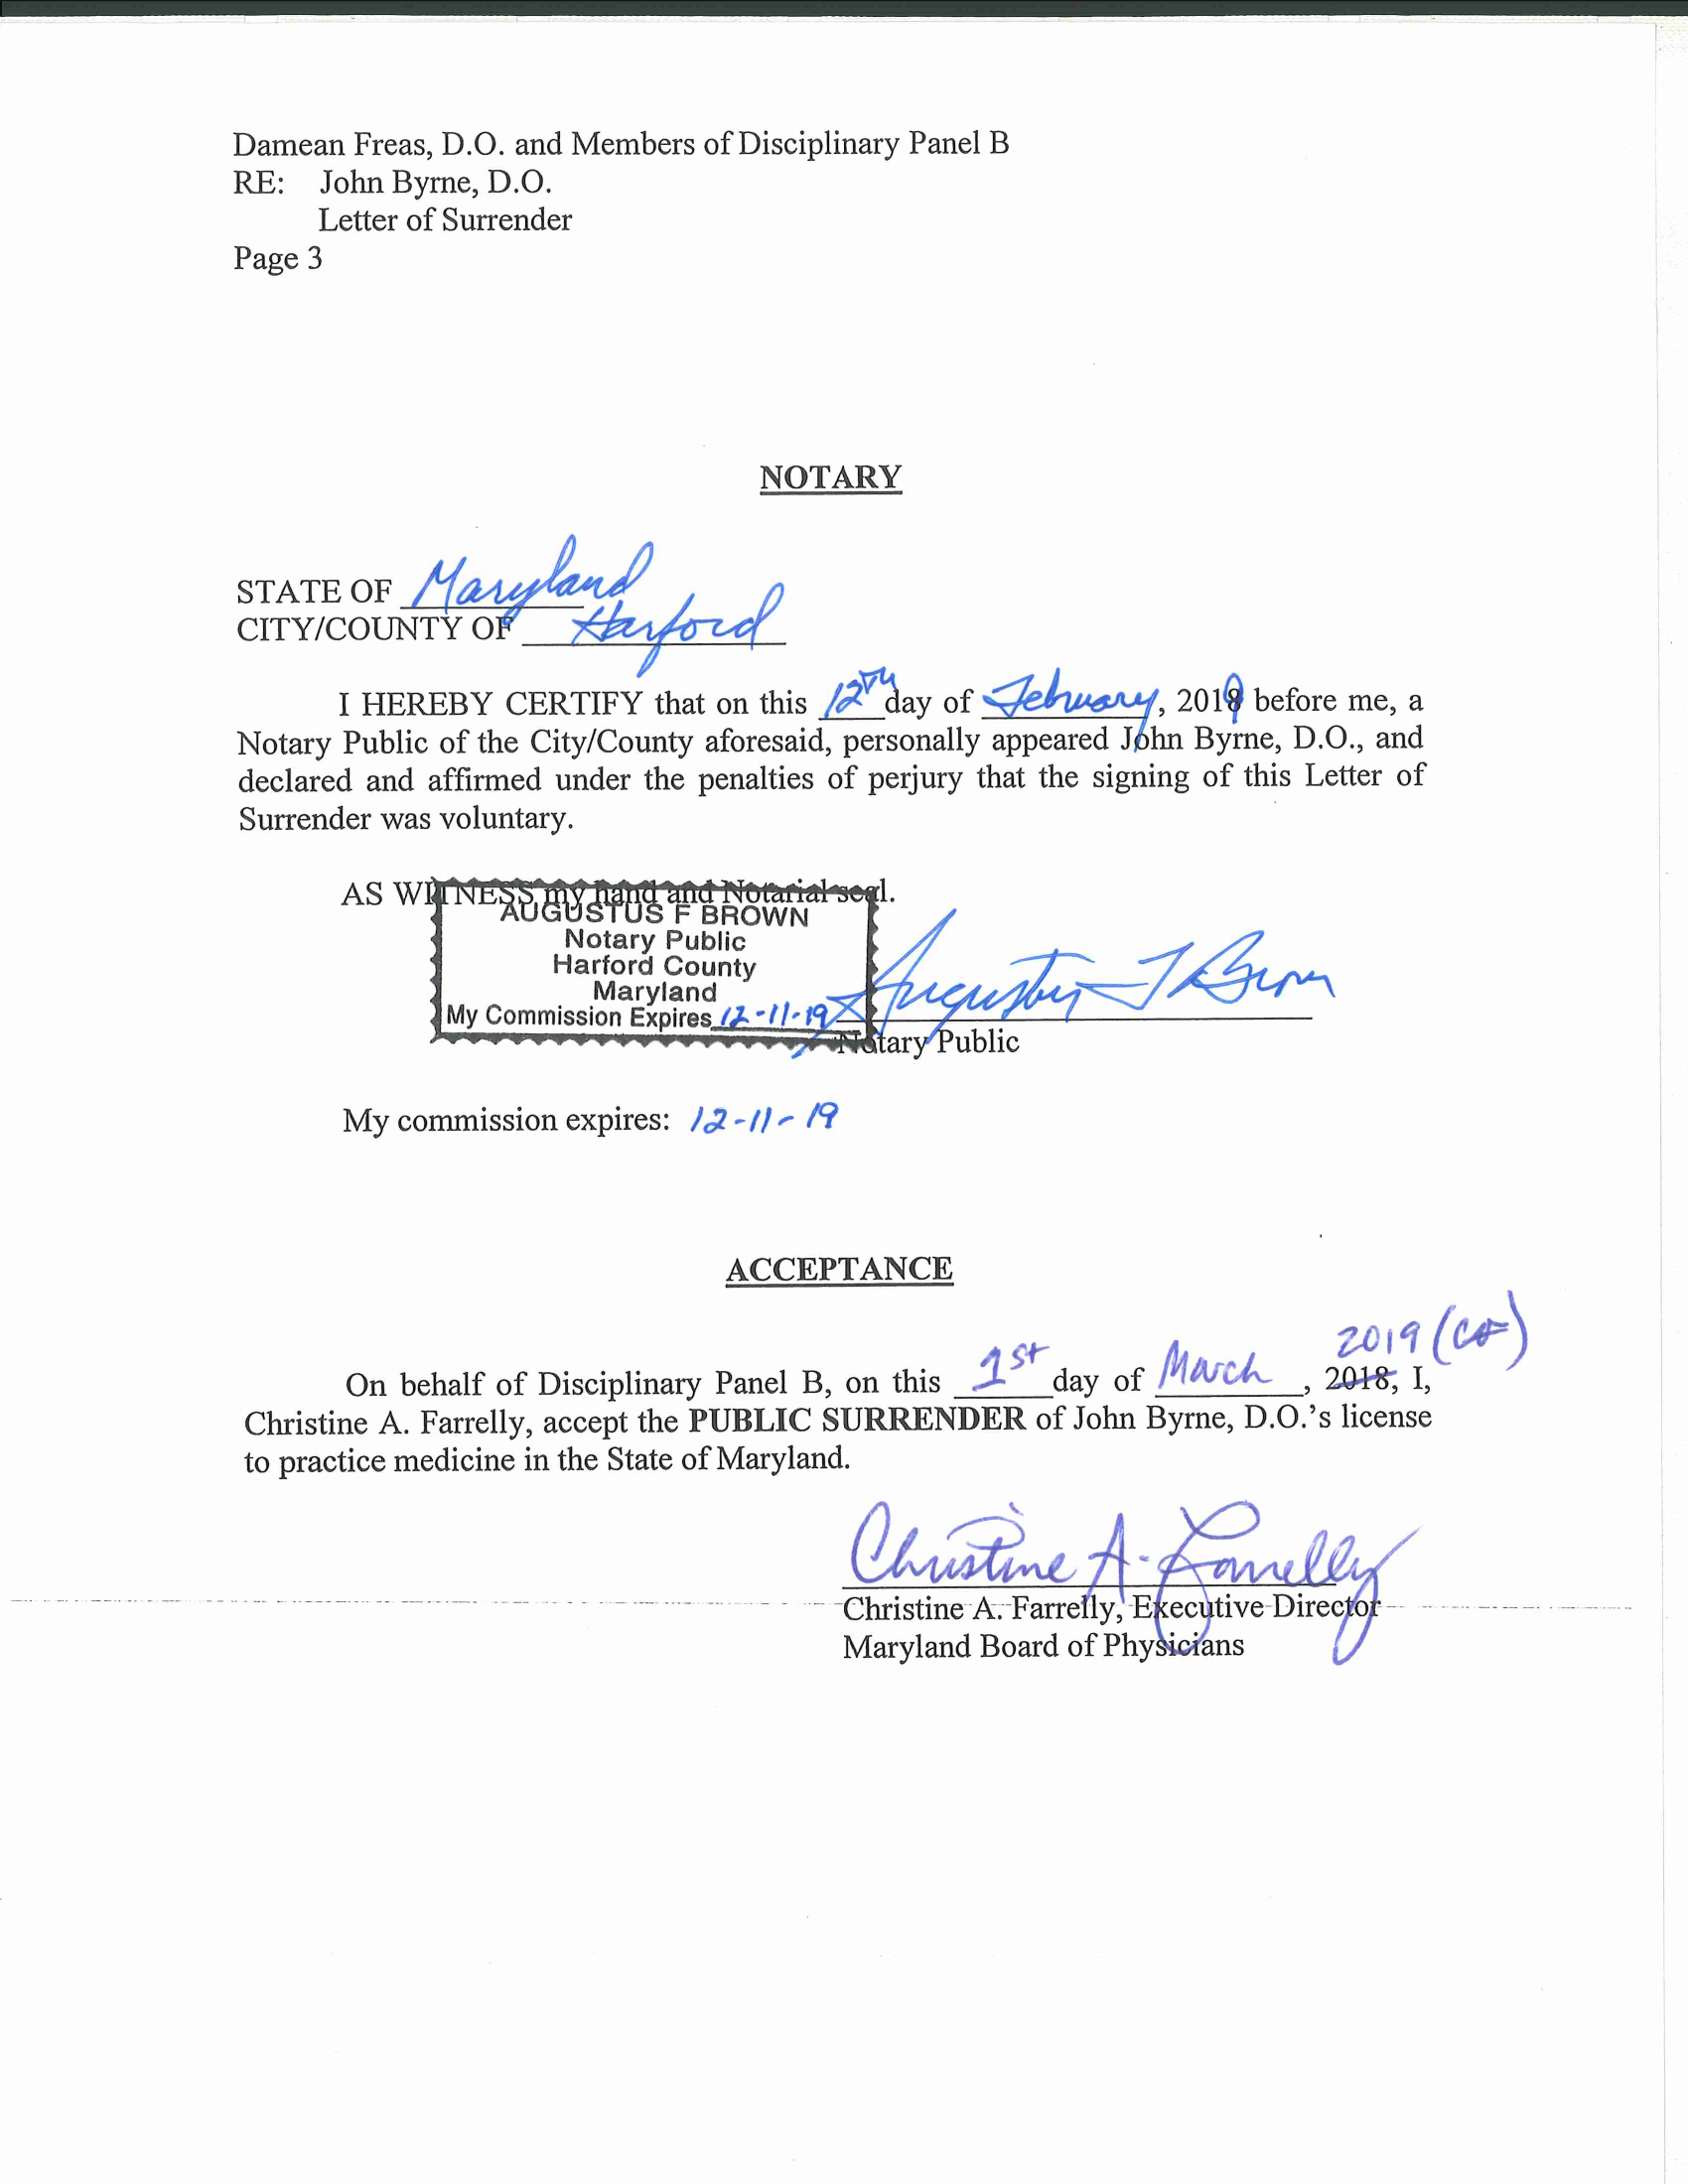 Damean Freas, D.O. and Members of Disciplinary Panel B
RE: John Byrne, D.O.
Letter of Surrender
Page 3
NOTARY
STATE OF Maryland
CITY/COUNTY OF Harford
I HEREBY CERTIFY that on this 12TH day of February, 2019 before me, a
Notary Public of the City/County aforesaid, personally appeared John Byrne, D.O., and
declared and affirmed under the penalties of perjury that the signing of this Letter of
Surrender was voluntary.
AS WITNESS my hand and Notarial seal.
AUGUSTUS F BROWN
Notary Public
Harford County
Maryland
My Commission Expires 12-11-19
Augustus F Brown
Notary Public
My commission expires: 12-11-19
ACCEPTANCE
2019 (CAF)
On behalf of Disciplinary Panel B, on this 1st day of March, 2018, I,
Christine A. Farrelly, accept the PUBLIC SURRENDER of John Byrne, D.O.'s license
to practice medicine in the State of Maryland.
Christine A. Farrelly
Christine A. Farrelly, Executive Director
Maryland Board of Physicians